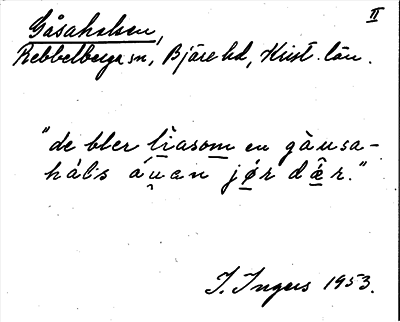 II
Gåsahalsen,
Rebbelberga sn, Bjäre hd, Krist. län.
"de bler lìasom en gàusa-
háls áu̯an jǿr dǽr."
I. Ingers 1953.